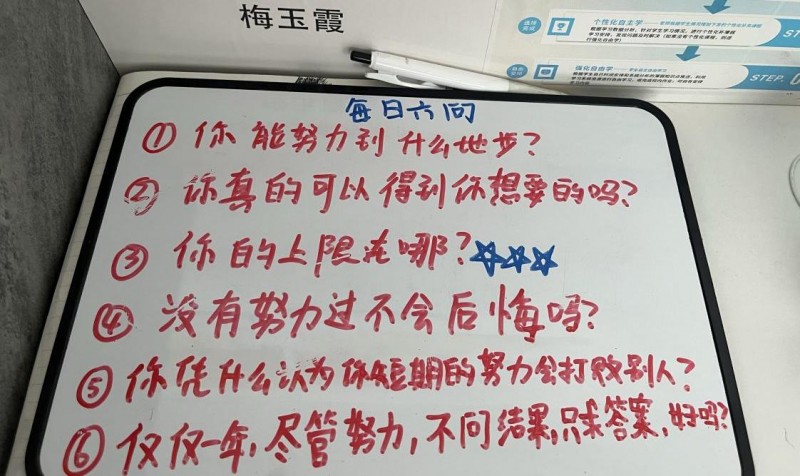 梅玉霞
个性化自主学
STEP.
强化自由学
每日六问
① 你能努力到什么地步?
② 你真的可以得到你想要的吗?
③ 你的上限在哪?
④ 没有努力过不会后悔吗?
⑤ 你凭什么认为你短期的努力会打败别人?
⑥ 仅仅一年,尽管努力,不问结果,只求答案,好吗?